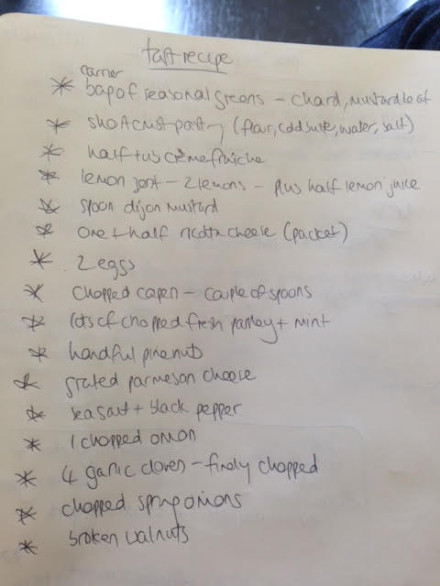 tart recipe
carrier
* bag of seasonal greens - chard, mustard leaf
* shortcrust pastry (flour, cold water, salt)
* half tub crème fraiche
* lemon zest - 2 lemons - plus half lemon juice
* spoon dijon mustard
* one + half ricotta cheese (packet)
* 2 eggs
* chopped capers - couple of spoons
* lots of chopped fresh parsley + mint
* handful pine nuts
* grated parmesan cheese
* sea salt + black pepper
* 1 chopped onion
* 4 garlic cloves - finely chopped
* chopped spring onions
* broken walnuts